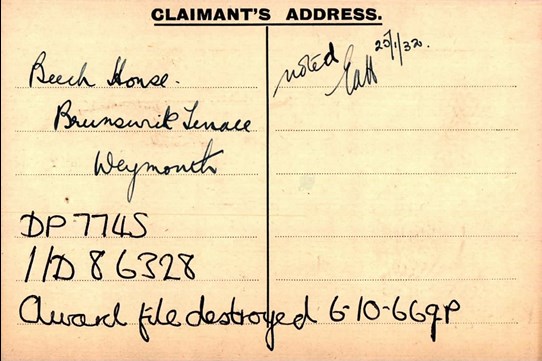 CLAIMANT'S ADDRESS.
Beech House.
Brunswick Terrace
Weymouth
noted 25/1/32.
DP 7745
1/D 86328
Award file destroyed 6-10-66 gP